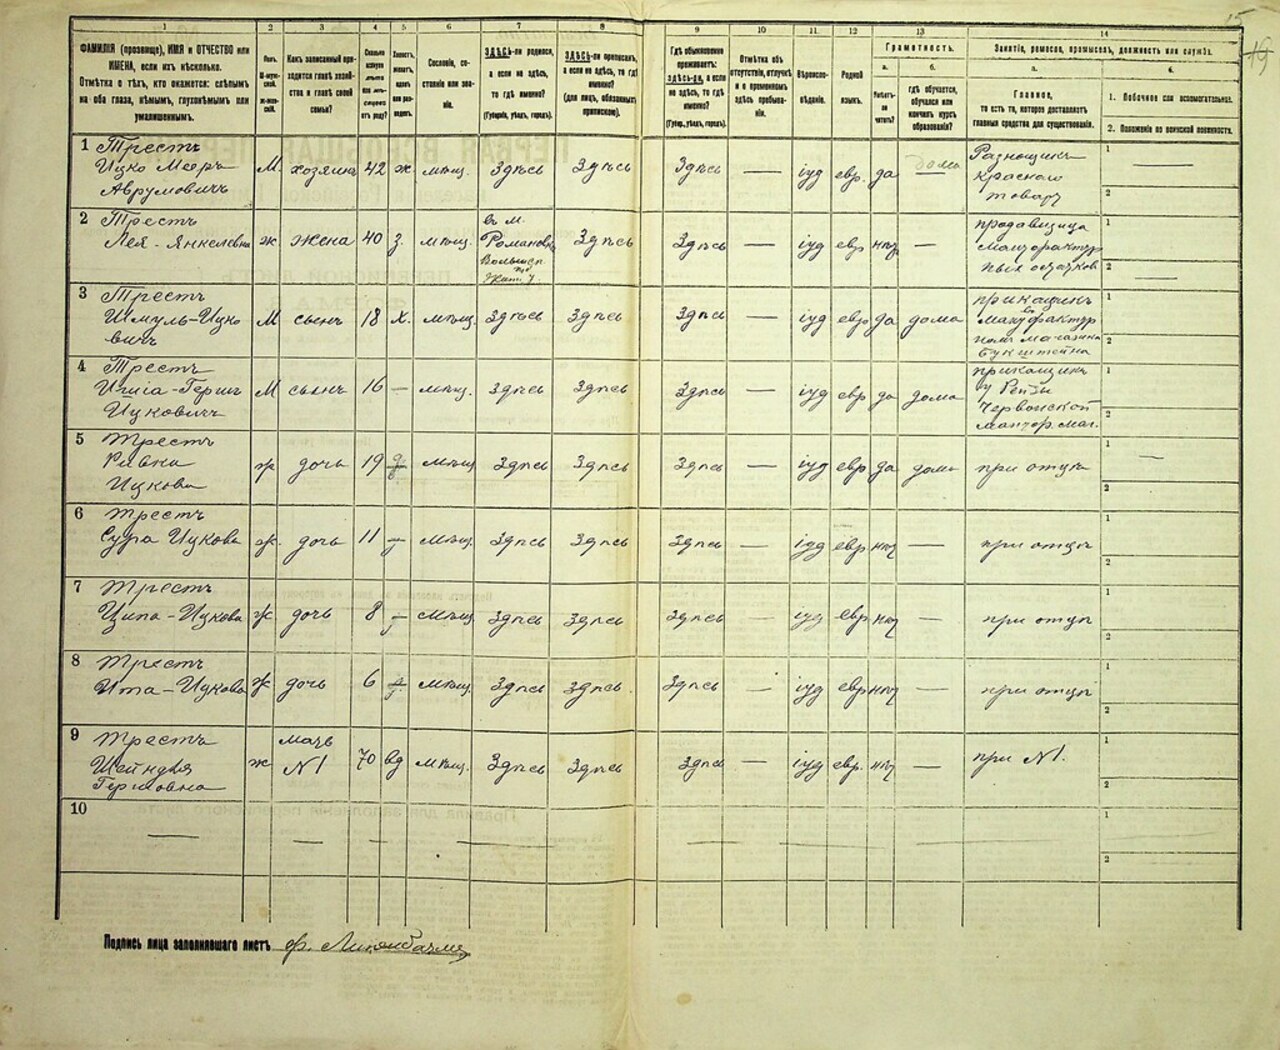 15
19
1 2 3 4 5 6 7 8 9 10 11. 12 13 14
ФАМИЛІЯ (прозвище), ИМЯ и ОТЧЕСТВО или
ИМЕНА, если ихъ нѣсколько.
Отмѣтка о тѣхъ, кто окажется: слѣпымъ
на оба глаза, нѣмымъ, глухонѣмымъ или
умалишеннымъ.
Полъ.
М-муж-
ской.
Ж-жен-
скій.
Какъ записанный при-
ходится главѣ хозяй-
ства и главѣ своей
семьи?
Сколько
минуло
лѣтъ
или мѣ-
сяцевъ
отъ роду?
Холостъ,
женатъ,
вдовъ
или раз-
веденъ.
Сословіе, со-
стояніе или зва-
ніе.
ЗДѢСЬ-ли родился,
а если не здѣсь,
то гдѣ именно?
(Губернія, уѣздъ, городъ).
ЗДѢСЬ-ли приписанъ,
а если не здѣсь, то гдѣ
именно?
(для лицъ, обязанныхъ
припискою).
Гдѣ обыкновенно
проживаетъ:
здѣсь-ли, а если
не здѣсь, то гдѣ
именно?
(Губер., уѣздъ, городъ).
Отмѣтка объ
отсутствіи, отлучкѣ
и о временномъ
здѣсь пребыва-
ніи.
Вѣроиспо-
вѣданіе.
Родной
языкъ.
Грамотность.
а.
Умѣетъ-
ли
читать?
б.
гдѣ обучается,
обучался или
кончилъ курсъ
образованія?
Занятіе, ремесло, промыселъ, должность или служба.
а.
Главное,
то есть то, которое доставляетъ
главныя средства для существованія.
б.
1. Побочное или вспомогательное.
2. Положеніе по воинской повинности.
1 Трестъ
Ицко Мееръ
Аврумовичъ
М. хозяинъ 42 ж мѣщ. Здѣсь Здѣсь Здѣсь — іуд евр. да дома
Разнощикъ
краснаго
товару
1 —
2
2 Трестъ
Лея - Янкелевна
ж жена 40 з. мѣщ.
въ м.
Романовкѣ
Волынс.
Жит. у.
Здѣсь Здѣсь — іуд евр нѣт —
продавщица
мануфактур
ныхъ остатков
1
2 —
3 Трестъ
Шмуль-Ицко
вичъ
М сынъ 18 х. мѣщ. Здѣсь Здѣсь Здѣсь — іуд евр да дома
прикащикъ
въ
мануфактур
номъ магазинѣ
Букштейна
1
2
4 Трестъ
Герш
Ицковичъ
М сынъ 16 — мѣщ. Здѣсь Здѣсь Здѣсь — іуд евр да дома
прикащикъ
у Рейзи
Червонской
мануф. маг.
1
2
5 Трестъ
Ривка
Ицкова
ж дочь 19 мѣщ Здѣсь Здѣсь Здѣсь — іуд евр да дома при отцѣ
1 —
2
6 Трестъ
Сура Ицкова ж. дочь 11 мѣщ. Здѣсь Здѣсь Здѣсь — іуд евр. нѣт — при отцѣ
1
2
7 Трестъ
Ципа - Ицкова ж дочь 8 мѣщ Здѣсь Здѣсь Здѣсь — іуд евр нѣт — при отцѣ
1
2
8 Трестъ
Ита - Ицкова ж дочь 6 мѣщ. Здѣсь Здѣсь Здѣсь — іуд евр нѣт — при отцѣ
1
2
9 Трестъ
Шейндля
Гершовна
ж
мать
N1
70 вд мѣщ. Здѣсь Здѣсь Здѣсь — іуд евр. нѣт — при N1.
1
2
10
— — — — — — — — —
1
2
Подпись лица заполнившаго листъ ф.